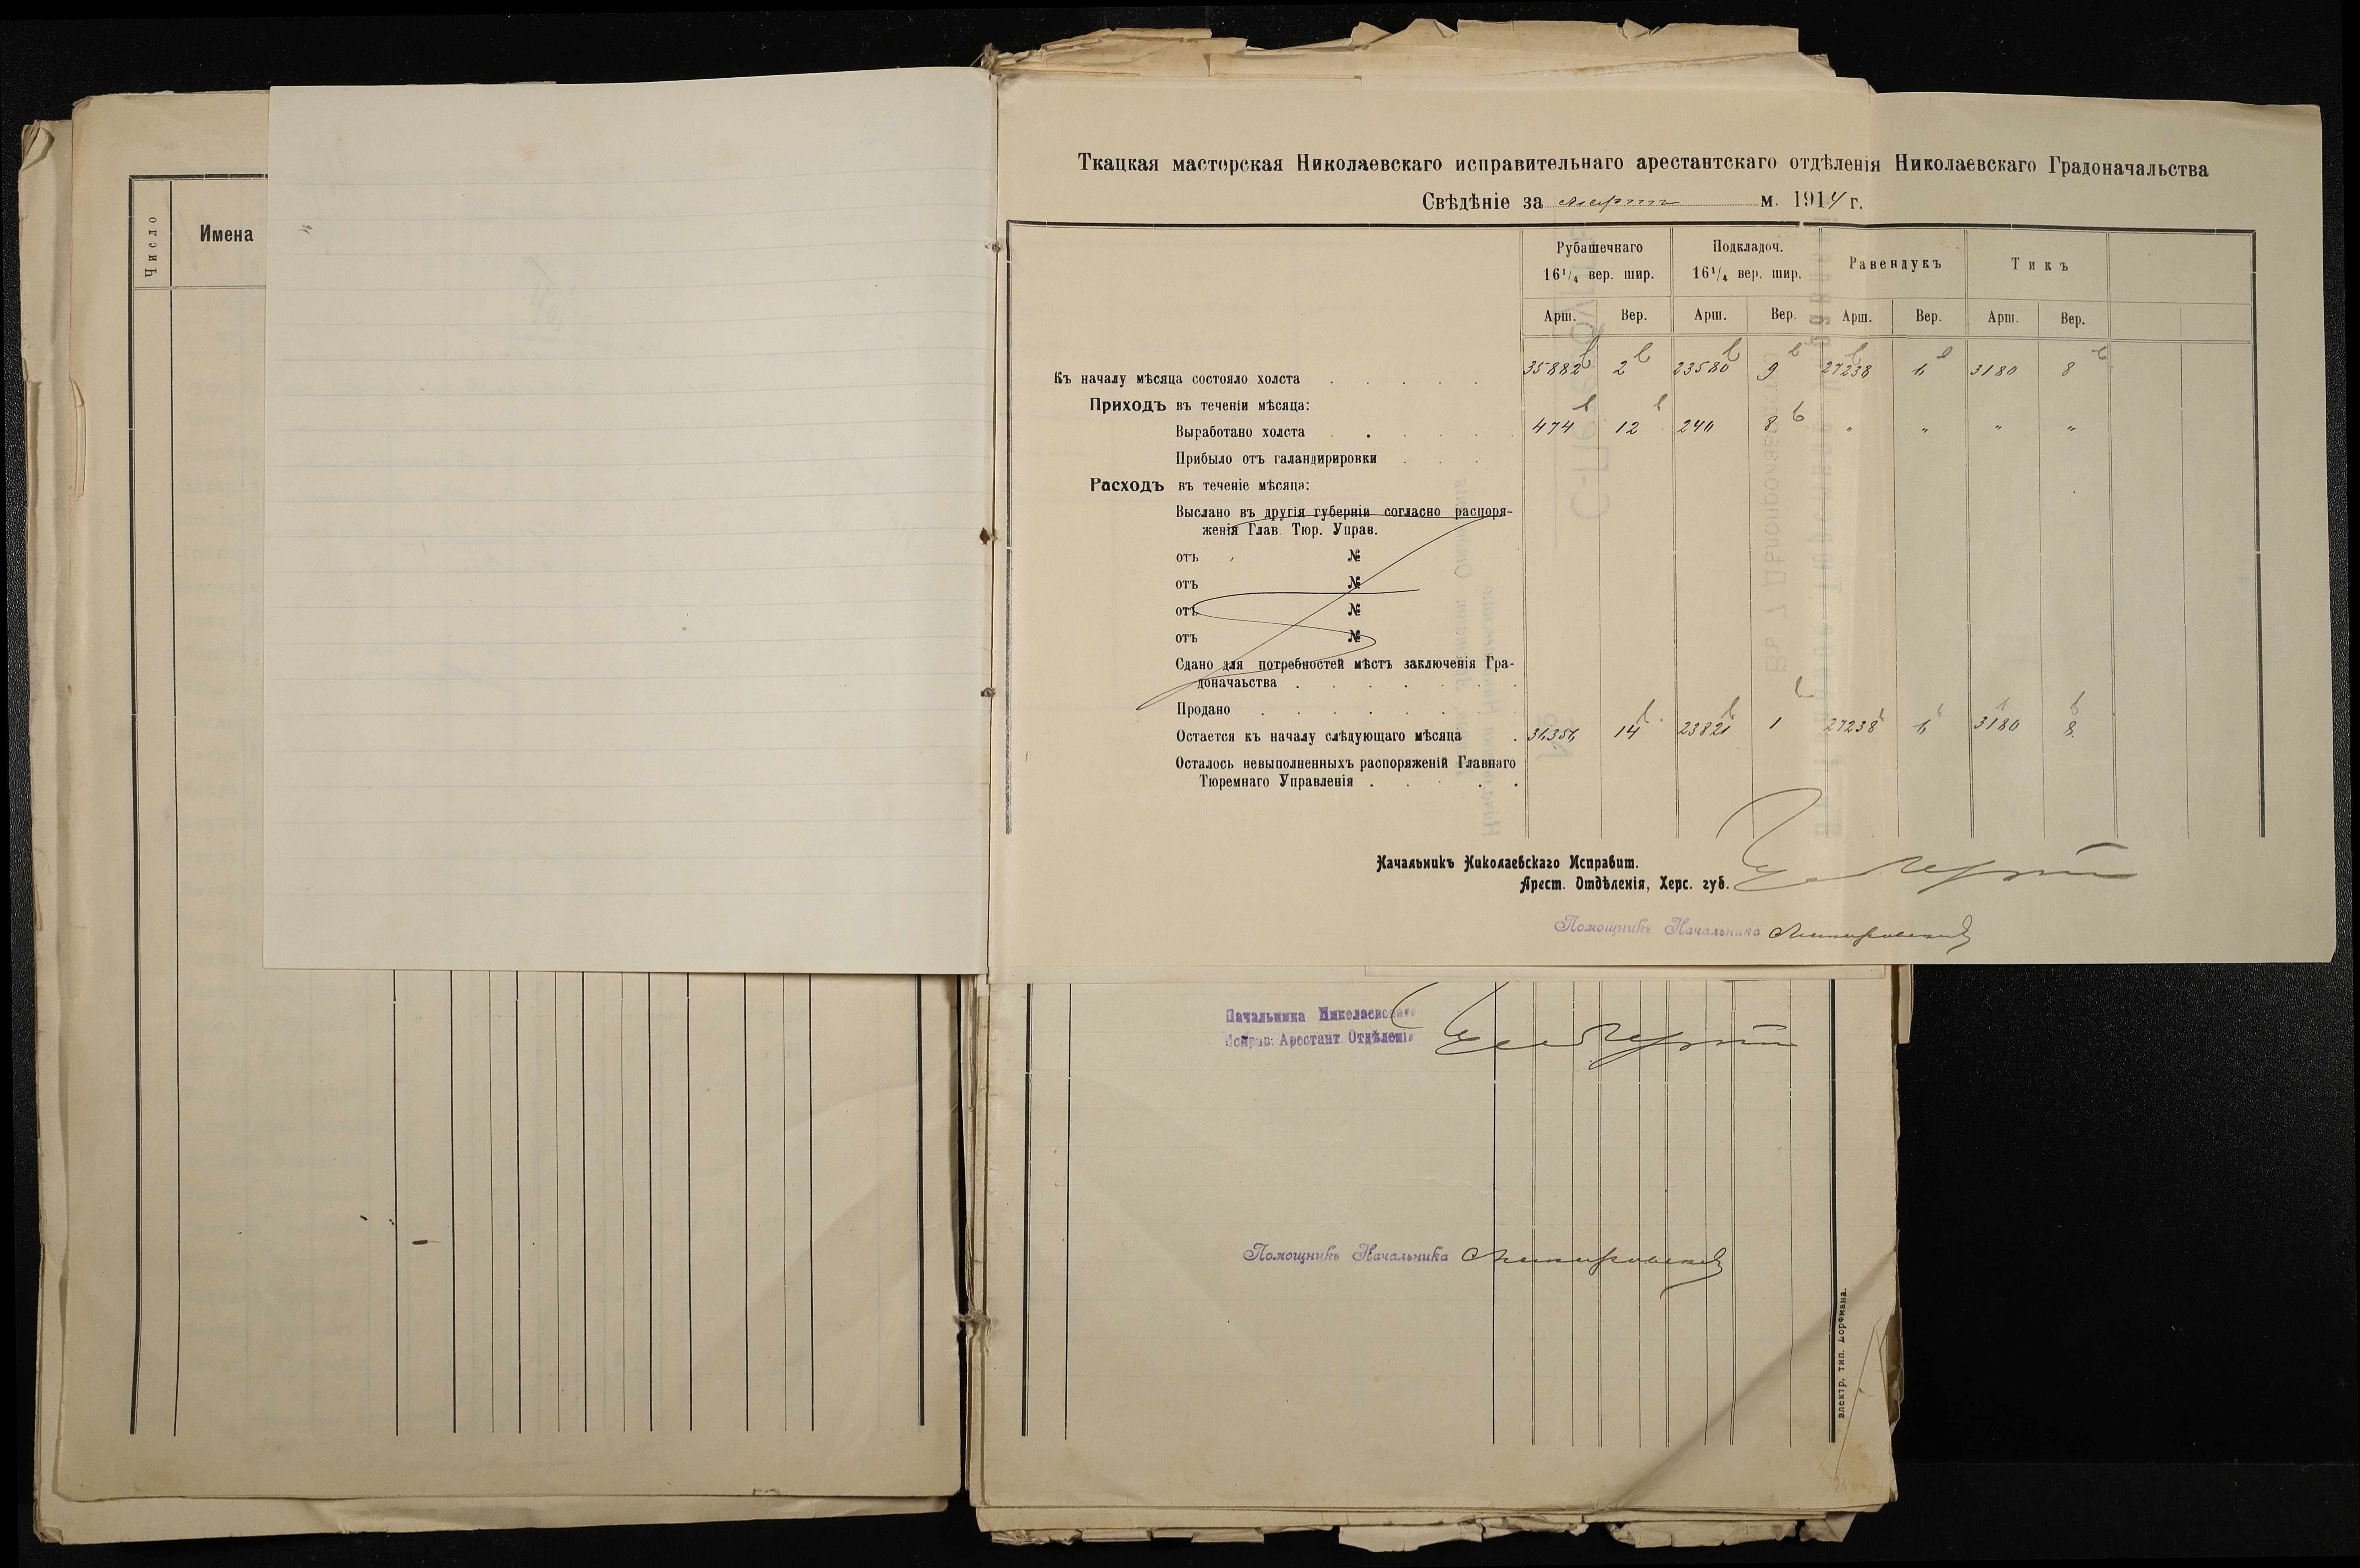 Число
Имена
Ткацкая мастерская Николаевскаго исправительнаго арестантскаго отдѣленія Николаевскаго Градоначальства
Свѣдѣніе за мартъ м. 1914 г.
Рубашечнаго 16¹/₄ вер. шир. Подкладоч. 16¹/₄ вер. шир. Равендукъ Тикъ
Арш. Вер. Арш. Вер. Арш. Вер. Арш. Вер.
Къ началу мѣсяца состояло холста . . . . . 35882 2 23580 9 27238 6 3180 8
Приходъ въ теченіи мѣсяца:
Выработано холста . . . . . 474 12 240 8 " " " "
Прибыло отъ галандирировки . . .
Расходъ въ теченіе мѣсяца:
Выслано въ другія губерніи согласно распоря-
женія Глав. Тюр. Управ.
отъ №
отъ №
отъ №
отъ №
Сдано для потребностей мѣстъ заключенія Гра-
доначаьства . . . . . .
Продано . . . . . .
Остается къ началу слѣдующаго мѣсяца . 36356 14 23821 1 27238 6 3180 8
Осталось невыполненныхъ распоряженій Главнаго
Тюремнаго Управленія . . . .
Начальникъ Николаевскаго Исправит.
Арест. Отдѣленія, Херс. губ.
Помощникъ Начальника
Начальника Николаевскаго
Исправ. Арестант. Отдѣленія
Помощникъ Начальника
электр. тип. Дорфмана.